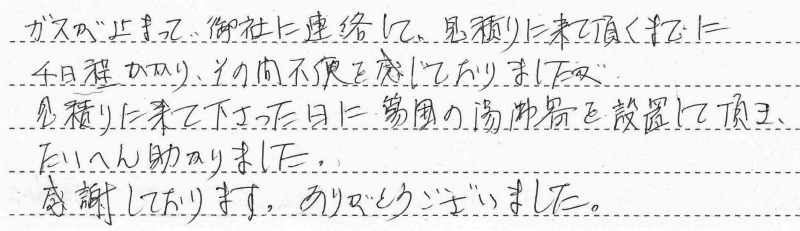 ガスが止まって、御社に連絡して、見積りに来て頂くまでに
4日程かかり、その間不便を感じておりましたが
見積りに来て下さった日に簡易の湯沸器を設置して頂き、
たいへん助かりました。
感謝しております。ありがとうございました。